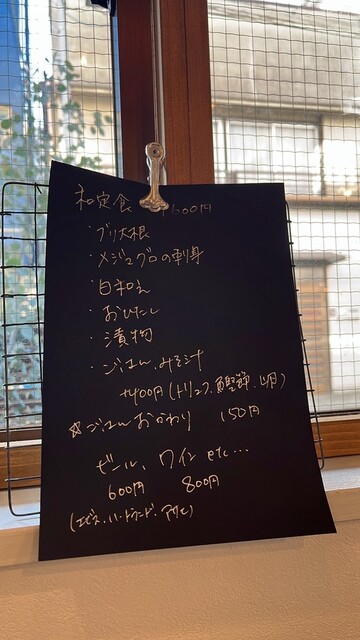 和定食 1600円
・ブリ大根
・メジマグロの刺身
・白和え
・おひたし
・漬物
・ごはん、みそ汁
+400円(トリュフ、醤、卵)
☆ごはんおかわり 150円
ビール、ワイン etc...
600円 800円
(エビス、ハートランド、アサヒ)